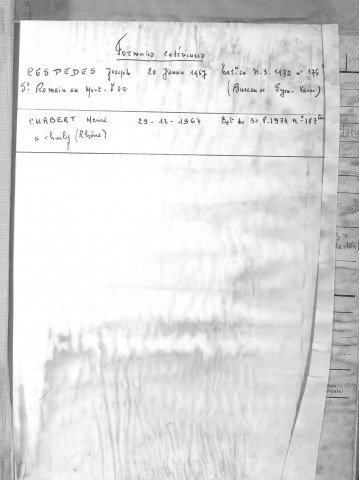 Formules extérieures
CESPEDES Joseph 20 Janvier 1967 Ext. du 21.3.1972 n° 176
St Romain au Mont-d'Or (Bureau de Lyon-Vaise)
CHABERT Henri 29-12-1967 Ext. du 30.8.1974 n° 187
à Charly (Rhône)